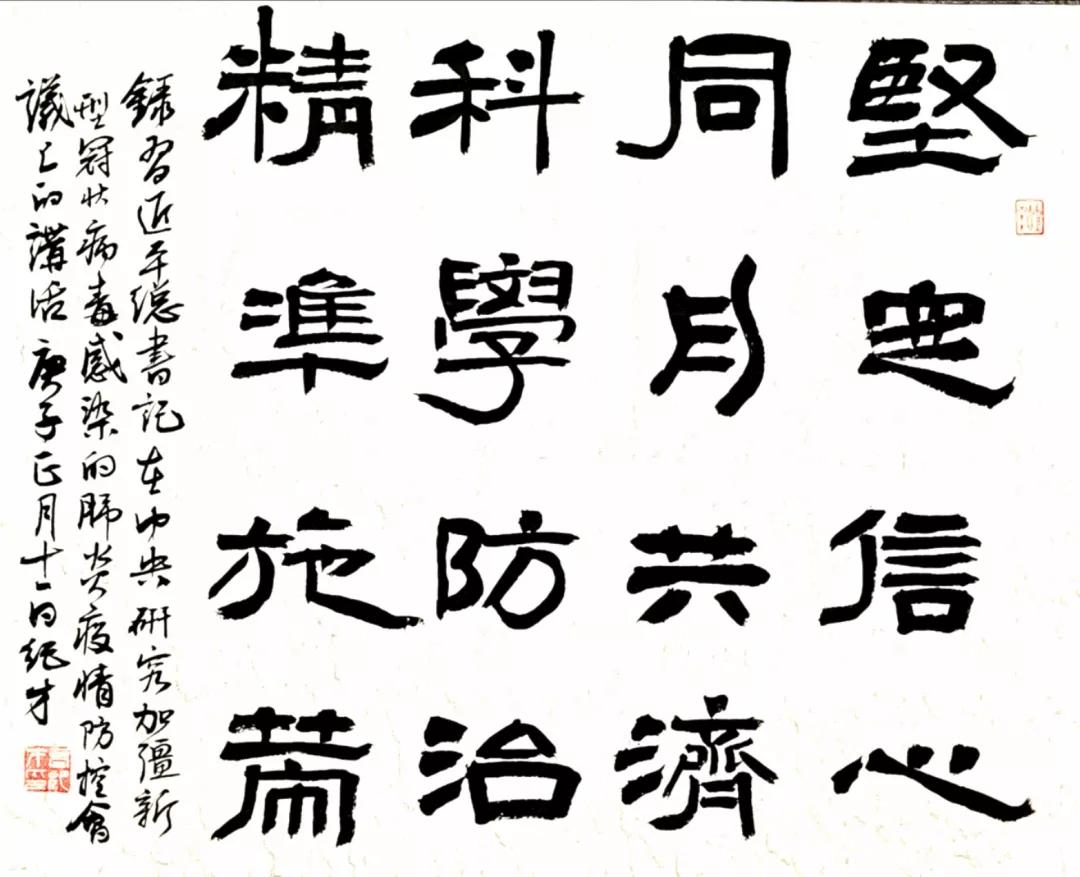 堅定信心
同舟共濟
科學防治
精準施策
錄習近平總書記在中央研究加彊新
型冠狀病毒感染的肺炎疫情防控會
議上的講话 庚子正月十一日纪才